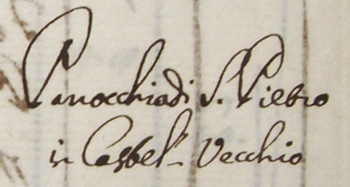 Parrocchia di S. Pietro
in Castel Vecchio